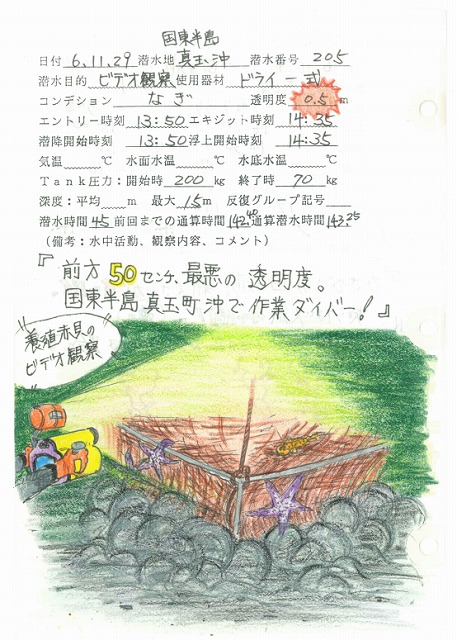 国東半島
日付 6.11.29 潜水地 真玉沖 潜水番号 205
潜水目的 ビデオ観察 使用器材 ドライ一式
コンデション なぎ 透明度 0.5 m
エントリー時刻 13:50 エキジット時刻 14:35
潜降開始時刻 13:50 浮上開始時刻 14:35
気温 ℃ 水面水温 ℃ 水底水温 ℃
Tank圧力:開始時 200 kg 終了時 70 kg
深度:平均 m 最大 15 m 反復グループ記号
潜水時間 45 前回までの通算時間 142.40 通算潜水時間 143.25
(備考:水中活動、観察内容、コメント)
『前方 50センチ、最悪の透明度。
国東半島真玉町沖で作業ダイバー!』
養殖赤貝の
ビデオ観察